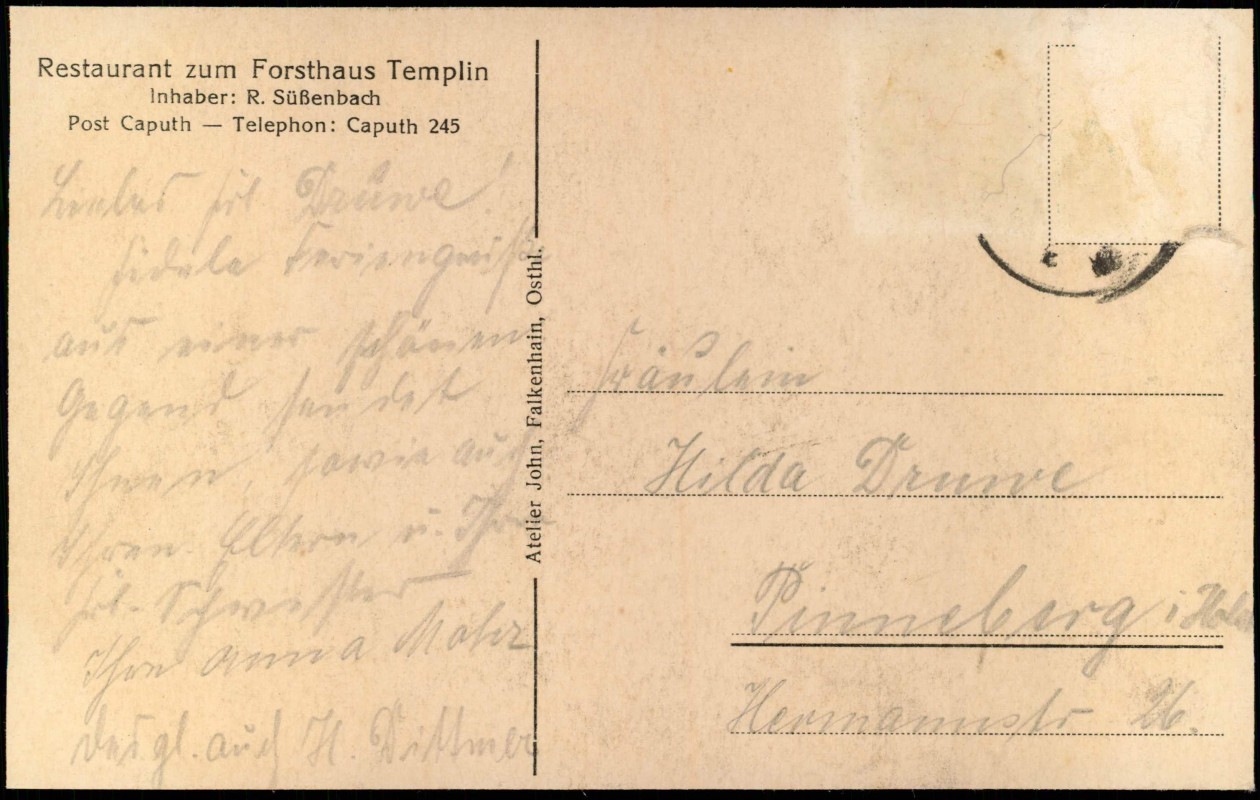 Restaurant zum Forsthaus Templin
Inhaber: R. Süßenbach
Post Caputh — Telephon: Caputh 245
Liebes Frl Druwe!
fidele Feriengrüße
aus einer schönen
Gegend sendet
Ihnen, sowie auch
Ihren Eltern u. Ihr
Frl. Schwester
Ihre Anna Mohr
desgl. auch H. Dittmer
Atelier John, Falkenhain, Osthl.
Fräulein
Hilda Druwe
Pinneberg i. Holst
Hermannstr 26.